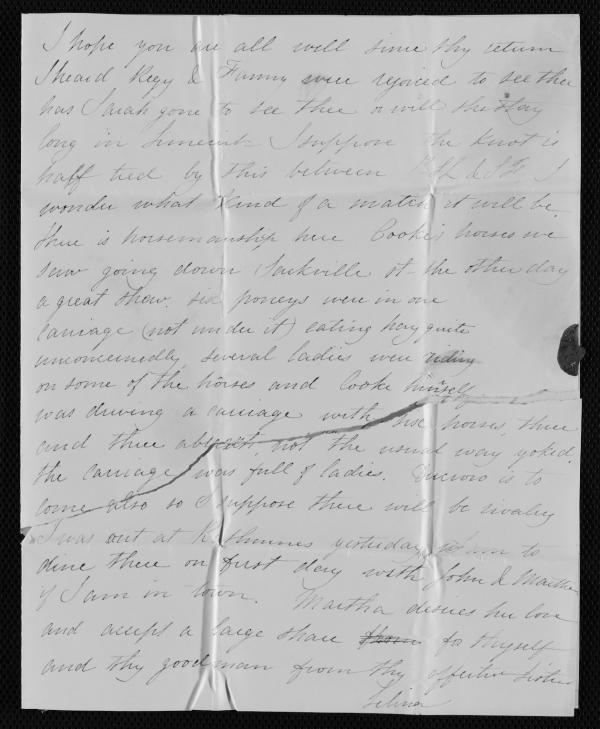 I hope you are all well since thy return
I heard Regy & Fanny were rejoiced to see thee
has Sarah gone to see thee or will she stay
long in Limerick I suppose the knot is
half tied by this between & I
wonder what kind of a match it will be.
there is horsemanship here Cooke's horses we
saw going down Sackville st- the other day
a great shew. six poneys were in one
carriage (not under it) eating hay quite
unconcernedly, several ladies were riding
on some of the horses and Cooke himself
was driving a carriage with six horses, three
and three abreast, not the usual way yoked.
the carriage was full of ladies. Ducrow is to
come also so I suppose there will be rivalry
I was out at yesterday, am to
dine there on first day with John & Martha
if I am in town. Martha desires her love
and accept a large share for thyself
and thy good man from thy affecte sister
Selina